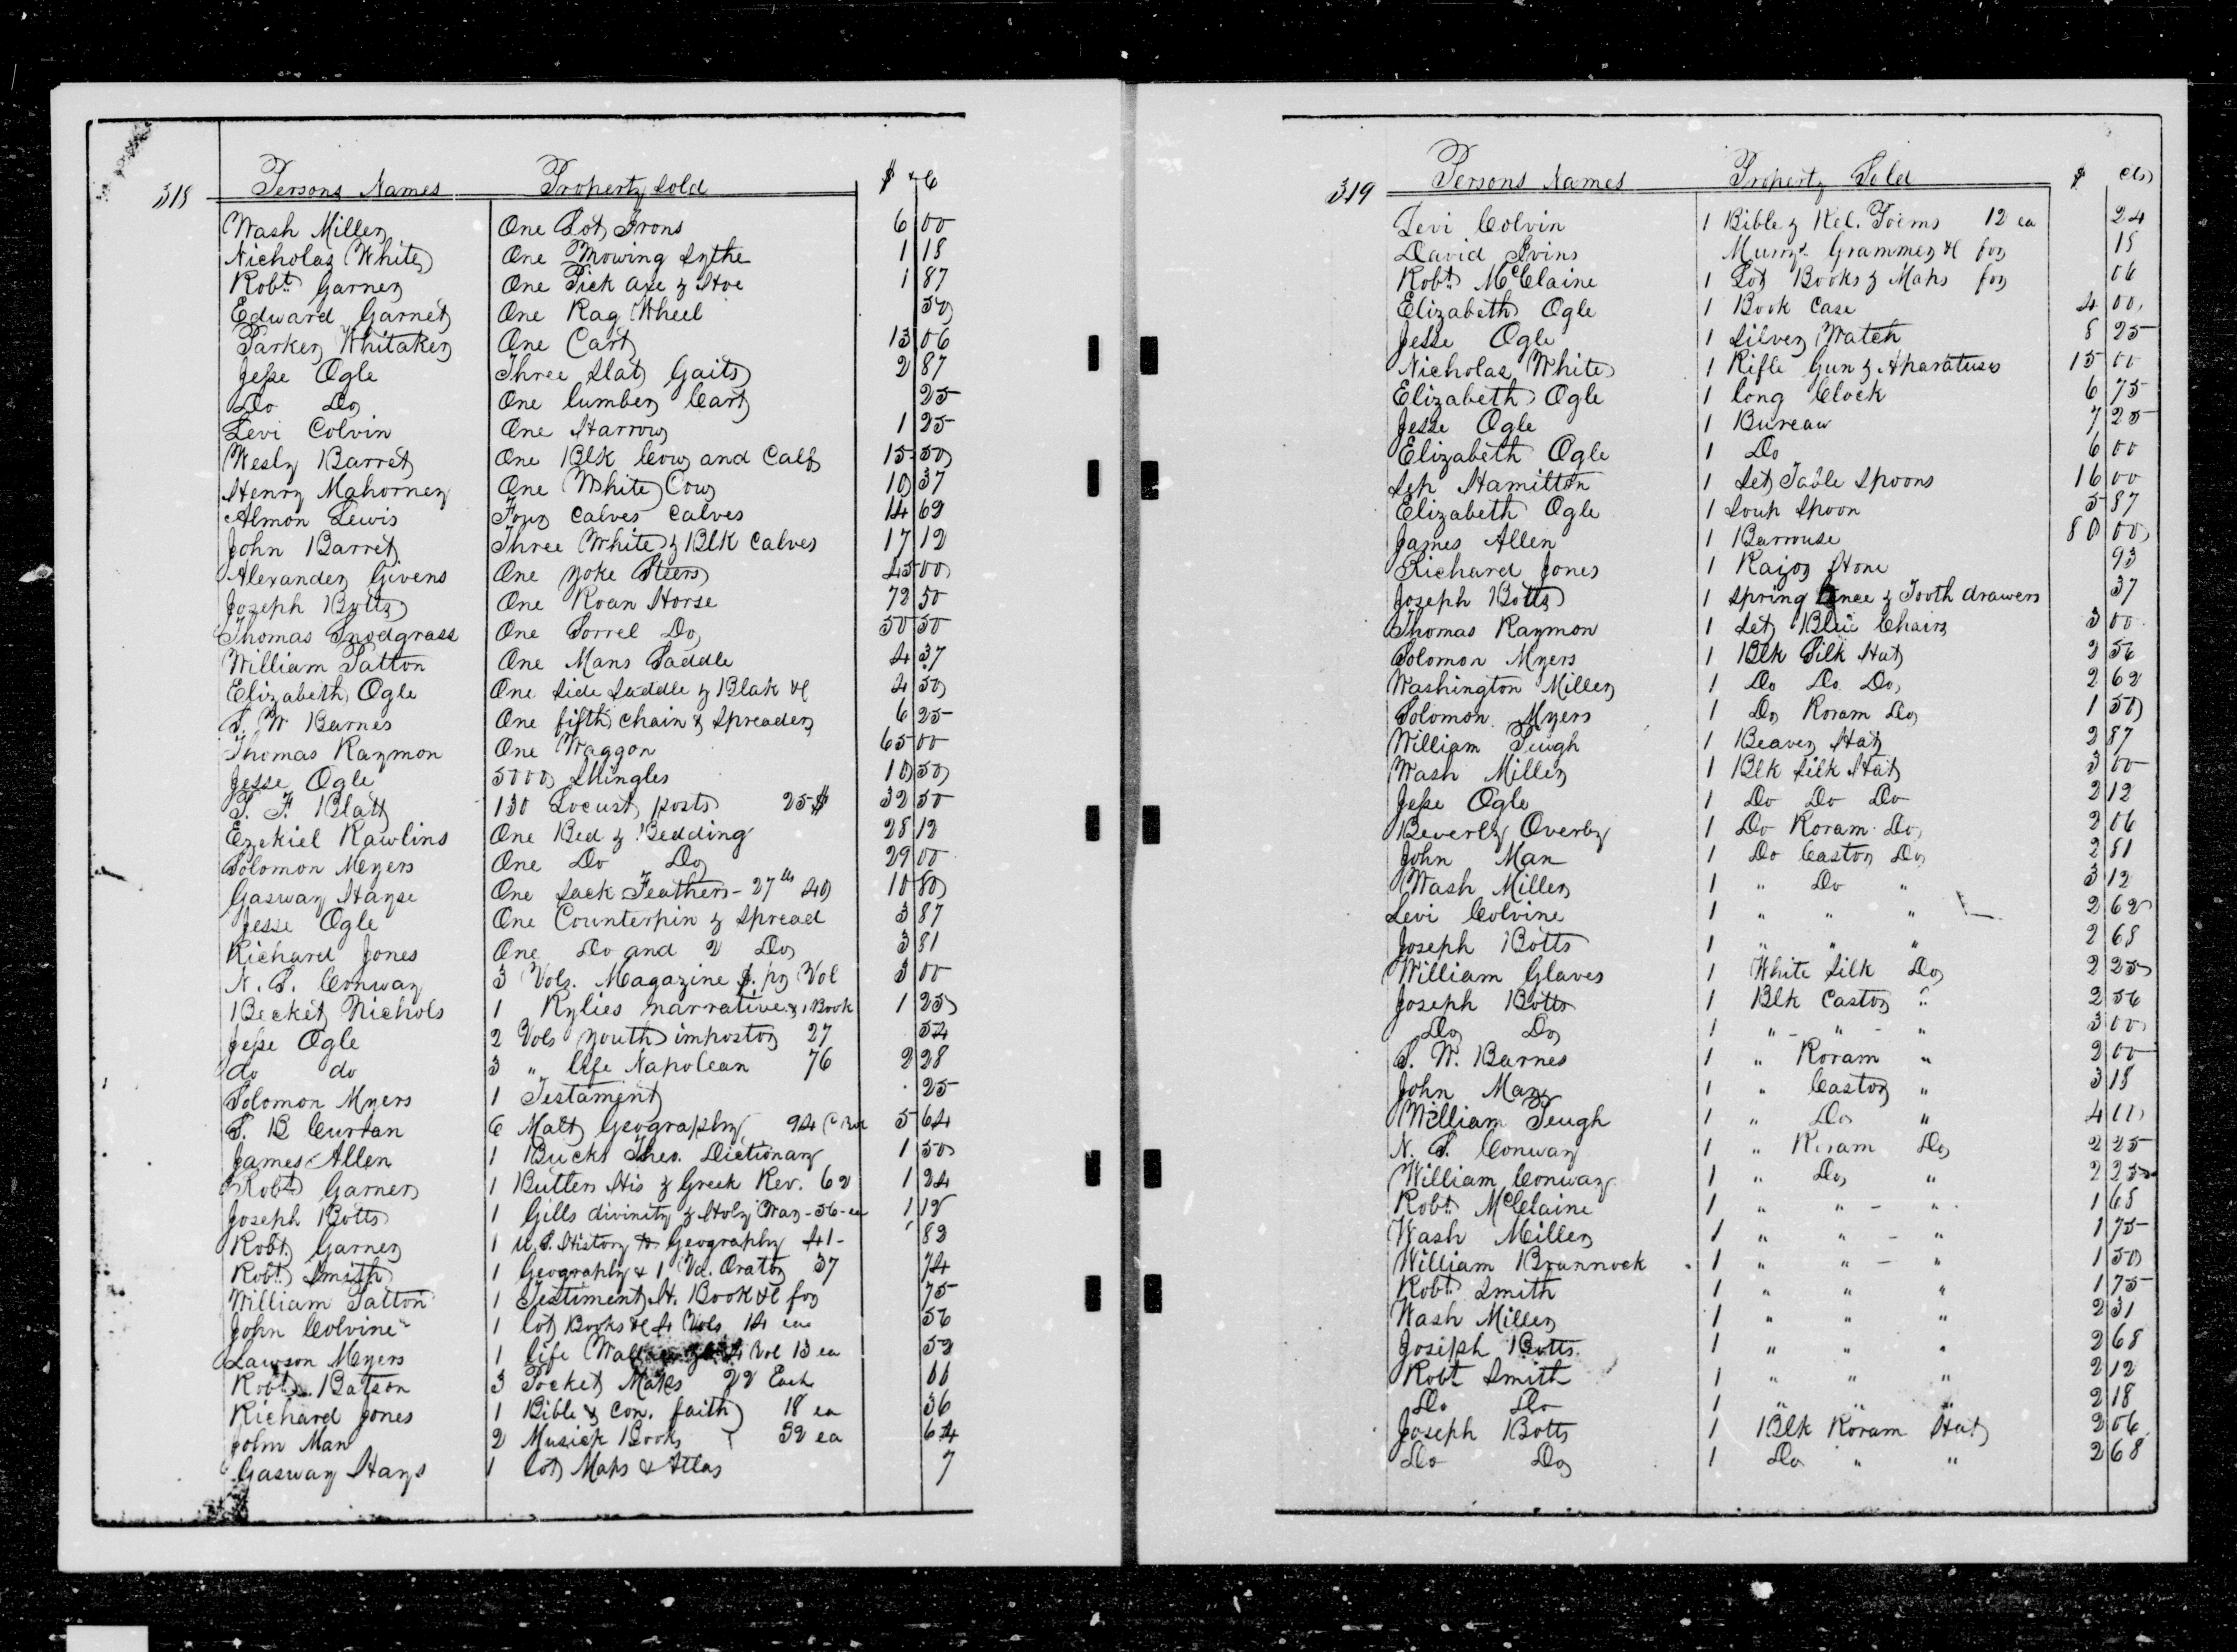 318 Persons Names Property Sold $ C
Wash Miller One Lot Irons 6 00
Nicholas White One Mowing Sythe 1 18
Robt. Garner One Pick axe & Hoe 1 87
Edward Garnet One Rag Wheel 50
Parker Whitaker One Cart 13 06
Jesse Ogle Three Slat Gaits 2 87
Do Do One lumber Cart 25
Levi Colvin One Harrow 1 25
Wesly Barret One Blk Cow and Calf 15 50
Henry Mahorney One White Cow 10 37
Almon Lewis Four Calves Calves 14 62
John Barret Three White & Blk Calves 17 12
Alexander Givens One yoke Steers 45 00
Joseph Botts One Roan Horse 72 50
Thomas Snodgrass One Sorrel Do 50 50
William Patton One Mans Saddle 4 37
Elizabeth Ogle One Side Saddle & Blak &c 4 50
S. W Barnes One fifth chain & Spreader 6 25
Thomas Raymon One Waggon 65 00
Jesse Ogle 5000 Shingles 10 50
T. F. Blatt 130 Locust posts 25$ 32 50
Ezekiel Rawlins One Bed & Bedding 28 12
Solomon Myers One Do Do 29 00
Gasway Hayse One Sack Feathers - 27 lb 40 10 80
Jesse Ogle One Counterpin & Spread 3 87
Richard Jones One Do and 2 Do 3 81
N. S. Conway 3 Vols. Magazine $. pr Vol 3 00
Becket Nichols 1 Rylies narrative & 1 Book 1 25
Jesse Ogle 2 Vols youth impostor 27 54
do do 3 " life Napolean 76 2 28
Solomon Myers 1 Testament 25
S. B Curran 6 Malt Geography 94 5 64
James Allen 1 Bucks Theo. Dictionary 1 50
Robt Garner 1 Butlers His & Greek Rev. 62 1 24
Joseph Botts 1 Gills divinity & Holy War - 56 - ea 1 12
Robt. Garner 1 U.S. History & Geography 41 - 82
Robt. Smith 1 Geography & 1 Vol. Orator 37 74
William Patton 1 Testiment H. Book &c for 75
John Colvine 1 lot Books &c 4 Vols 14 ea 56
Lawson Myers 1 life 4 Vol 13 ea 52
Robt. Batson 3 Pocket Maps 22 Each 66
Richard Jones 1 Bible & Con. faith 18 ea 36
John Man 2 Musick Books 32 ea 64
Gasway Hays 1 lot Maps & Atlas 7
319 Persons Names Property Sold $ Cts
Levi Colvin 1 Bible & Rel. Poems 12 ea 24
David Ivins Murry's Grammer &c for 18
Robt. McClaine 1 Lot Books & Maps for 06
Elizabeth Ogle 1 Book Case 4 00
Jesse Ogle 1 Silver Watch 8 25
Nicholas White 1 Rifle Gun & Aparatuses 15 00
Elizabeth Ogle 1 long Clock 6 75
Jesse Ogle 1 Bureau 7 25
Elizabeth Ogle 1 Do 6 00
Sep Hamilton 1 Set Table Spoons 16 00
Elizabeth Ogle 1 Soup Spoon 5 87
James Allen 1 Barrouse 80 00
Richard Jones 1 Raizor Hone 93
Joseph Botts 1 Spring Lance & Tooth drawers 37
Thomas Raymon 1 Set Blue Chairs 3 00
Solomon Myers 1 Blk Silk Hat 2 56
Washington Miller 1 Do Do Do 2 62
Solomon Myers 1 Do Roram Do 1 50
William Peugh 1 Beaver Hat 2 87
Wash Miller 1 Blk Silk Hat 3 00
Jesse Ogle 1 Do Do Do 2 12
Beverly Overby 1 Do Roram Do 2 06
John Man 1 Do Castor Do 2 81
Wash Miller 1 " Do " 3 12
Levi Colvine 1 " " " 2 62
Joseph Botts 1 " " " 2 68
William Glaves 1 White Silk Do 2 25
Joseph Botts 1 Blk Castor " 2 56
Do Do 1 " - " - " 3 00
S. W. Barnes 1 " Roram " 2 00
John Man 1 " Castor " 3 18
William Peugh 1 " Do " 4 00
N. S. Conway 1 " Roram Do 2 25
William Conway 1 " Do " 2 25
Robt. McClaine 1 " " - " 1 68
Wash Miller 1 " " - " 1 75
William Brannock 1 " " - " 1 50
Robt Smith 1 " " " 1 75
Wash Miller 1 " " " 2 31
Joseph Botts 1 " " " 2 68
Robt Smith 1 " " " 2 12
Do Do 1 " " " 2 18
Joseph Botts 1 Blk Roram Hat 2 06
Do Do 1 Do " " 2 68